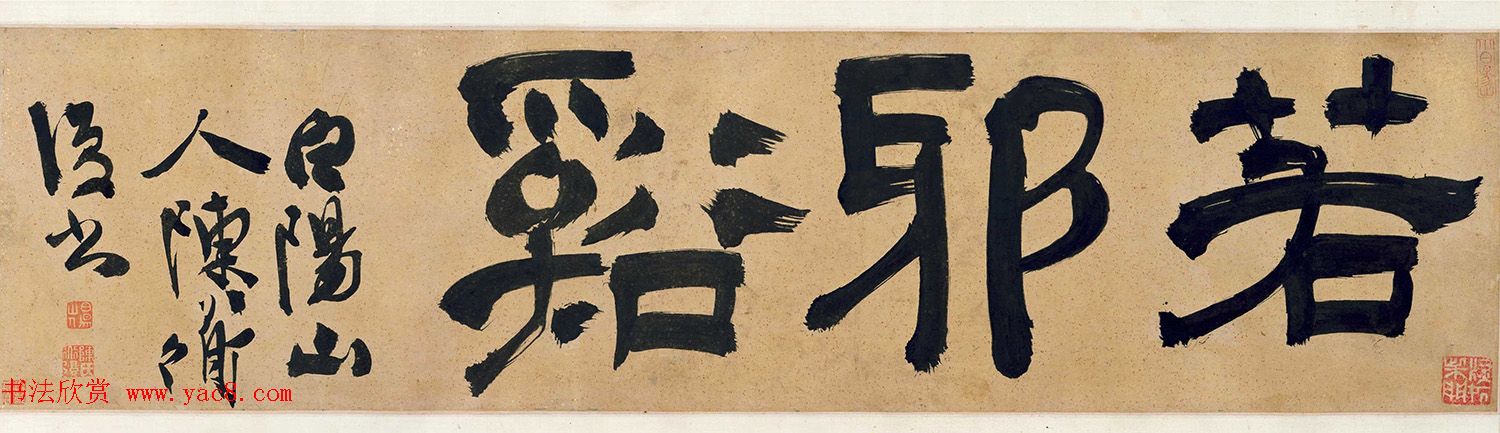 若耶谿
白陽山
人陳道
復書
书法欣赏 www.yac8.com